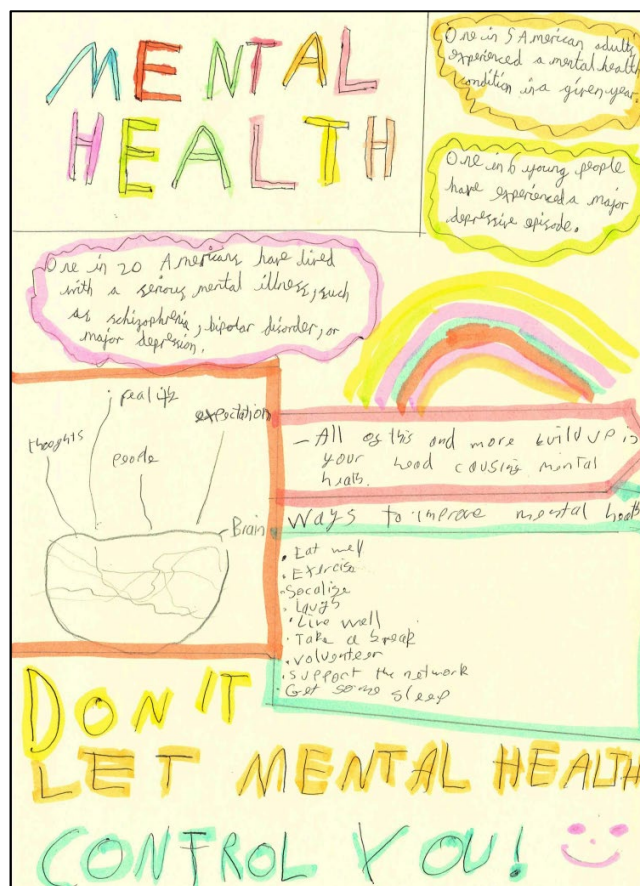 MENTAL
HEALTH
One in 5 American adults
experienced a mental health
condition in a given year
One in 6 young people
have experienced a major
depressive episode.
One in 20 Americans have lived
with a serious mental illness, such
as schizophrenia, bipolar disorder, or
major depression.
reality
expectation
thoughts
people
Brain
- All of this and more build up is
your head causing mental
health.
Ways to improve mental health
• Eat well
• Exercise
• Socalize
• Laugh
• Live well
• Take a break
• volunteer
• support the network
• Get some sleep
DON'T
LET MENTAL HEALTH
CONTROL YOU!